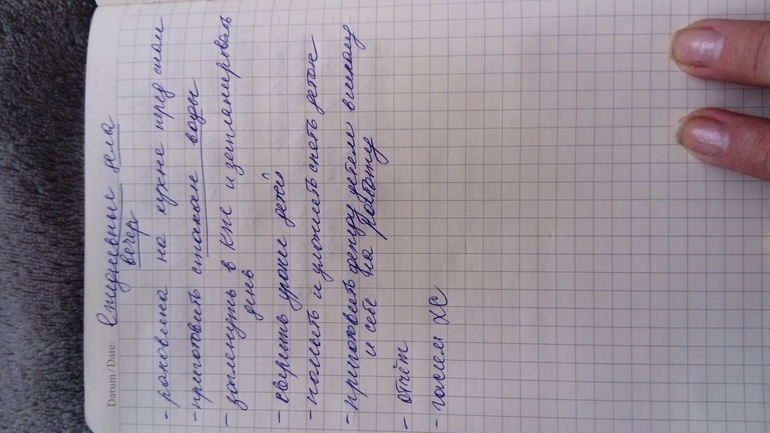 Datum/Date:
Ежедневные дела
вечер
- раковина на кухне перед сном
- приготовить стакан воды
- заглянуть в КПС и запланировать
день
- сверить уроки детей
- помыть и уложить спать деток
- приготовить одежду детям в школу
и себе на работу
- отчёт
- гасием ХС